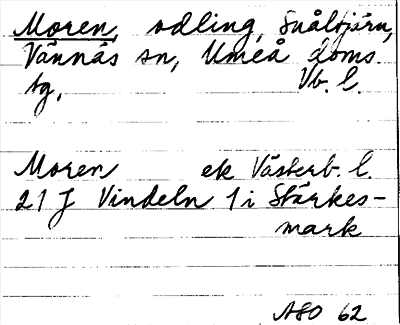 Moren, odling, Snåltjärn,
Vännäs sn, Umeå doms.
tg, Vb. l.
Moren ek Västerb. l.
21 J Vindeln 1 i Stärkes-
mark
ASO 62